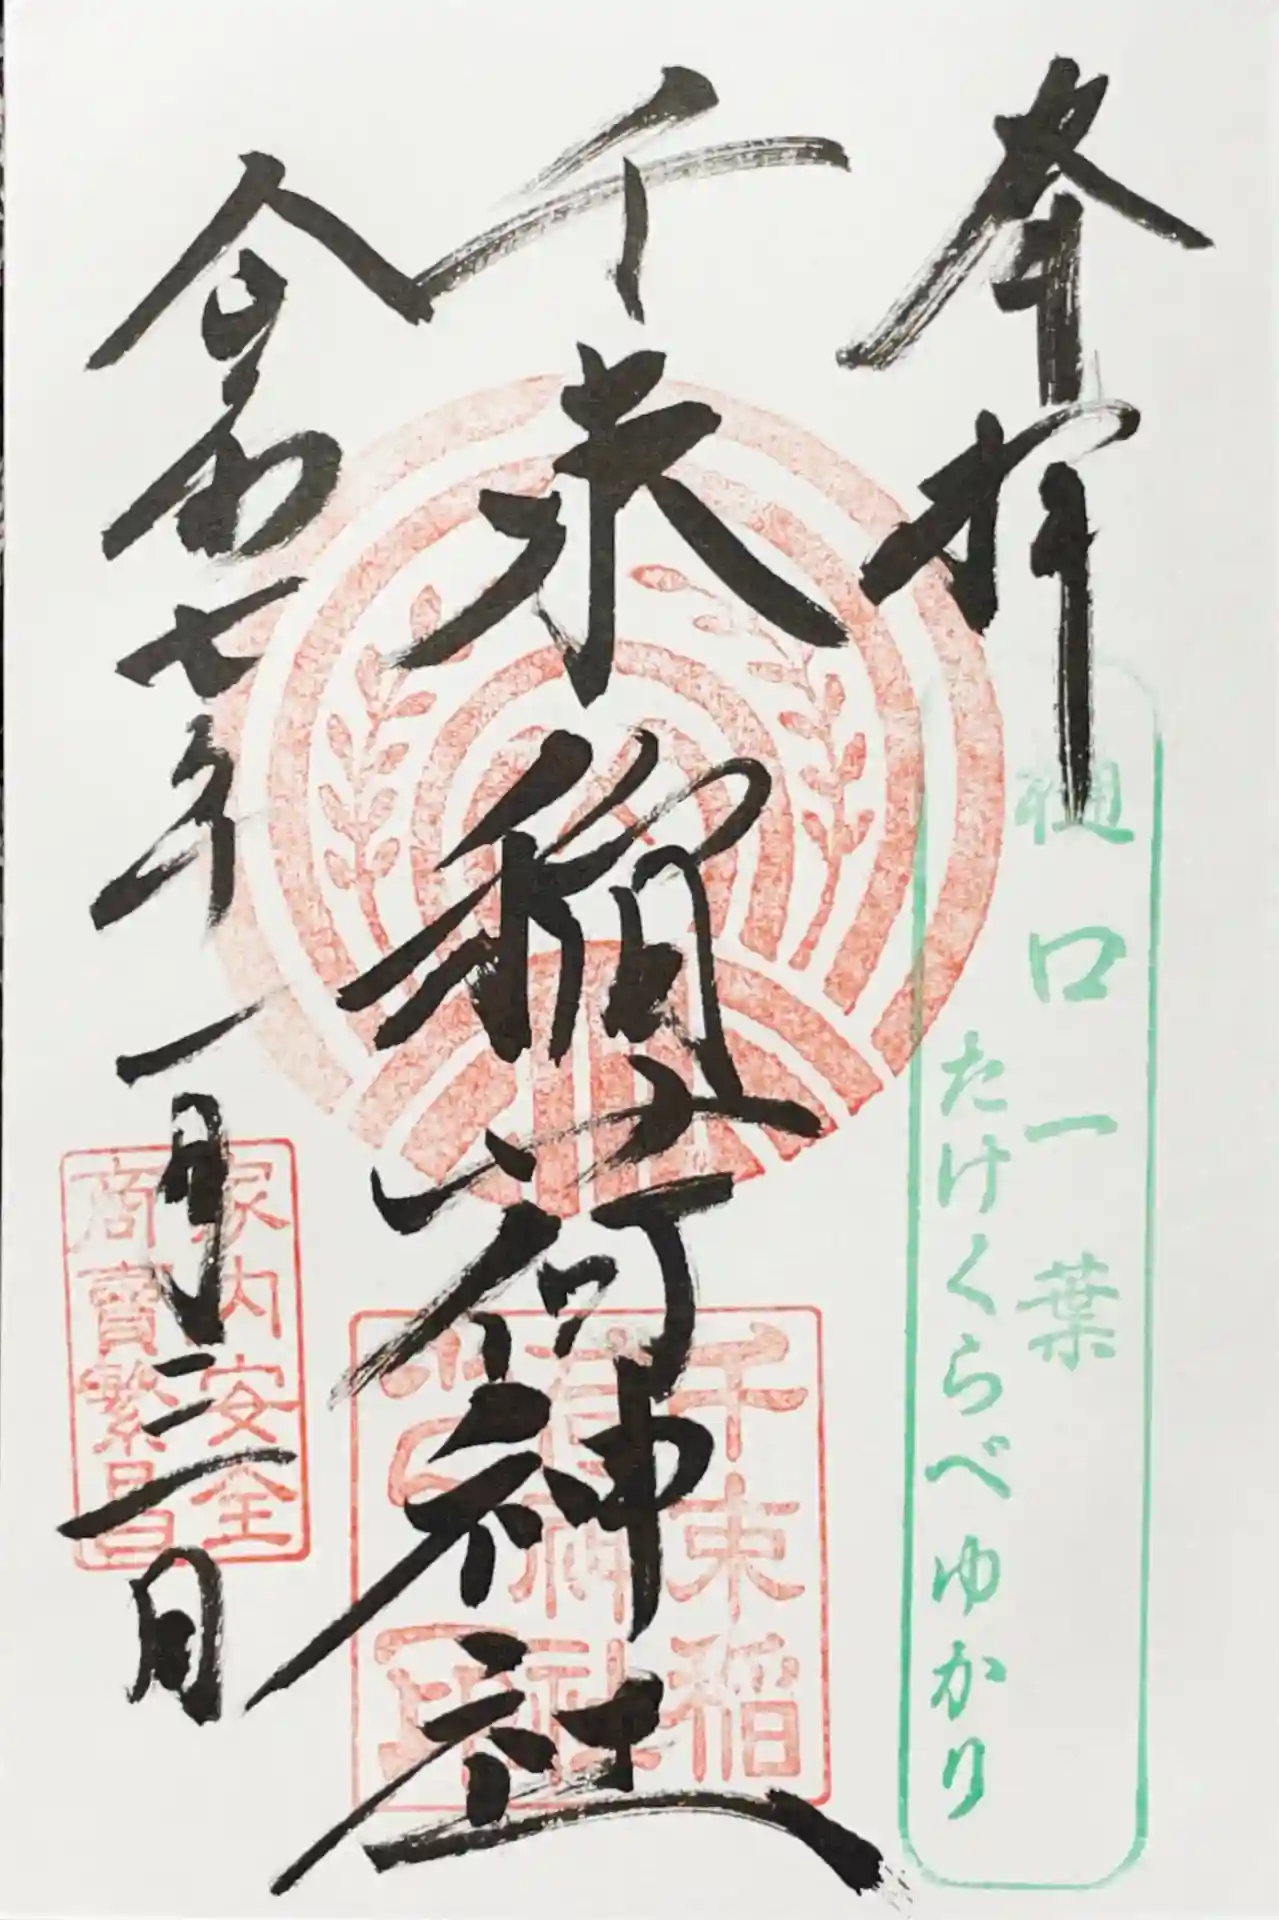 奉拝
樋口一葉
たけくらべゆかり
千束稲荷神社
千束稲荷神社之印
令和七年一月二日
家内安全
商賣繁昌